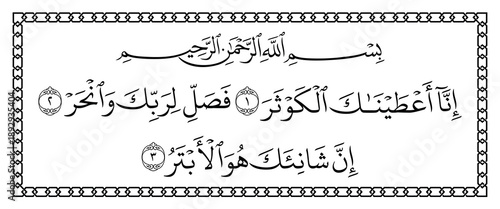 بِسْمِ ٱللَّهِ ٱلرَّحْمَٰنِ ٱلرَّحِيمِ
إِنَّآ أَعْطَيْنَـٰكَ ٱلْكَوْثَرَ ۝١ فَصَلِّ لِرَبِّكَ وَٱنْحَرْ ۝٢
إِنَّ شَانِئَكَ هُوَ ٱلْأَبْتَرُ ۝٣
Adobe Stock | #1892935404